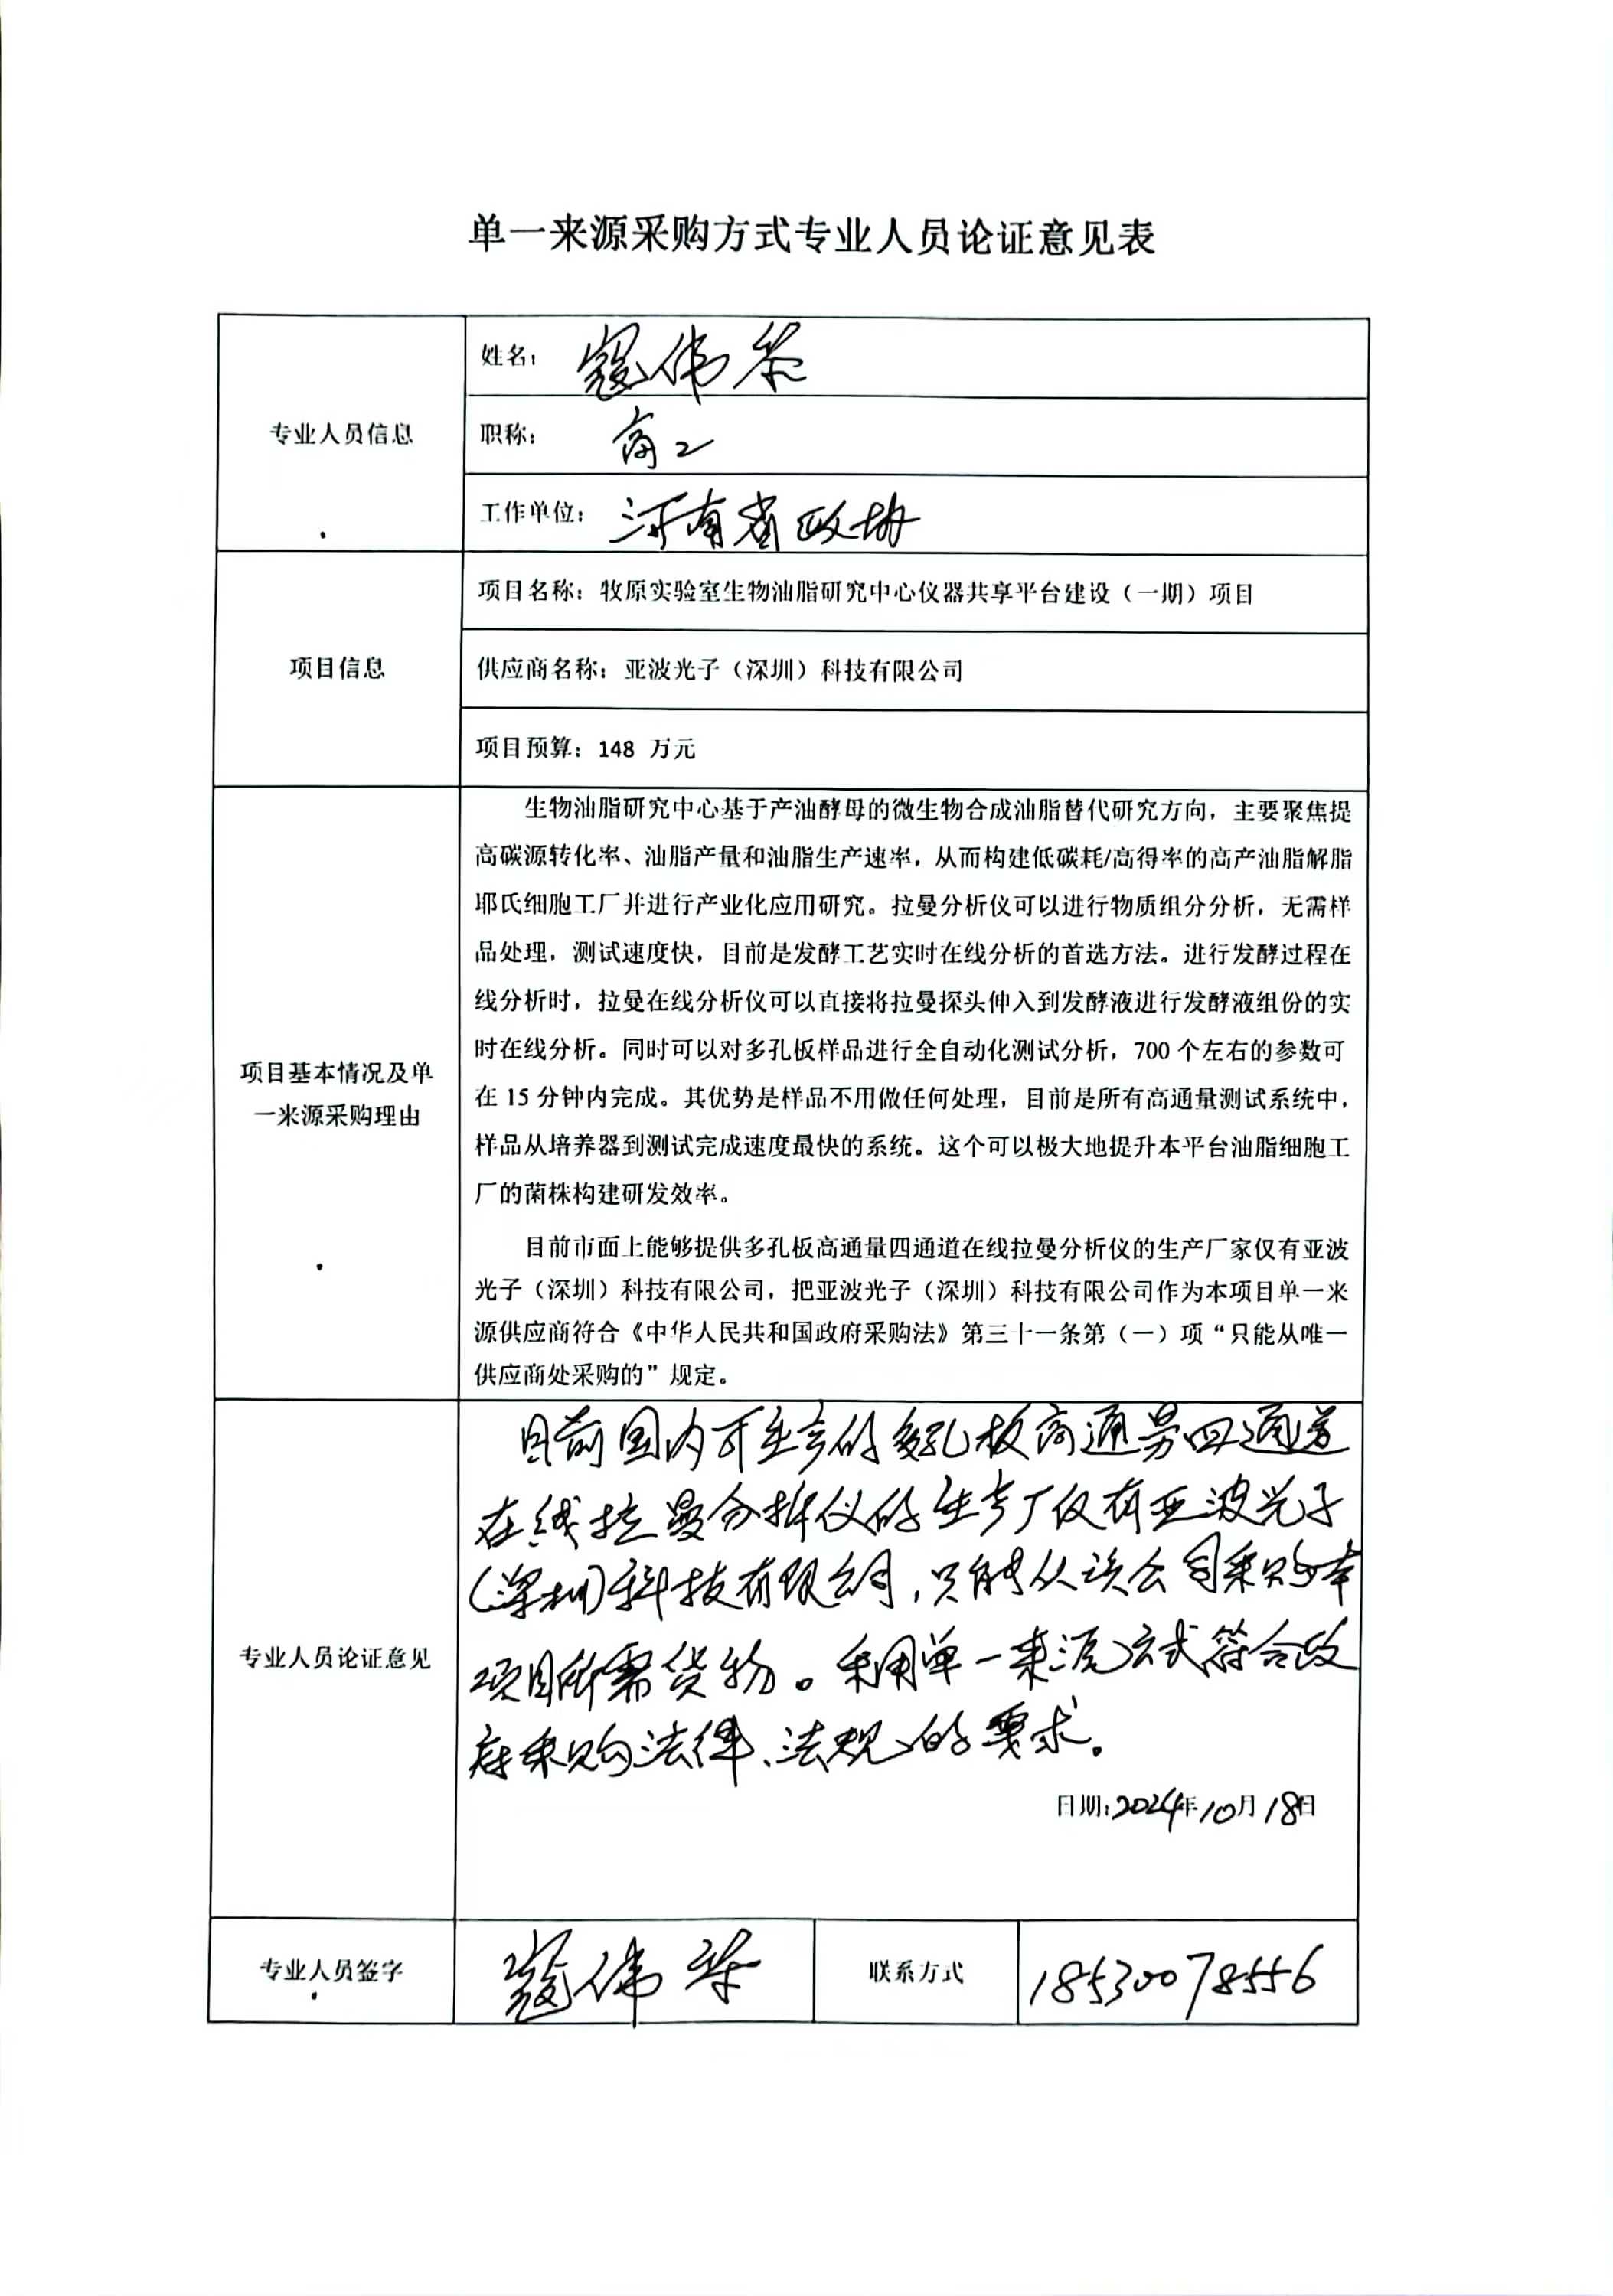 单一来源采购方式专业人员论证意见表
专业人员信息
姓名：寇伟
职称：高工
工作单位：河南省政协
项目信息
项目名称：牧原实验室生物油脂研究中心仪器共享平台建设（一期）项目
供应商名称：亚波光子（深圳）科技有限公司
项目预算：148 万元
项目基本情况及单
一来源采购理由
生物油脂研究中心基于产油酵母的微生物合成油脂替代研究方向，主要聚焦提
高碳源转化率、油脂产量和油脂生产速率，从而构建低碳耗/高得率的高产油脂解脂
耶氏细胞工厂并进行产业化应用研究。拉曼分析仪可以进行物质组分分析，无需样
品处理，测试速度快，目前是发酵工艺实时在线分析的首选方法。进行发酵过程在
线分析时，拉曼在线分析仪可以直接将拉曼探头伸入到发酵液进行发酵液组份的实
时在线分析。同时可以对多孔板样品进行全自动化测试分析，700 个左右的参数可
在 15 分钟内完成。其优势是样品不用做任何处理，目前是所有高通量测试系统中，
样品从培养器到测试完成速度最快的系统。这个可以极大地提升本平台油脂细胞工
厂的菌株构建研发效率。
目前市面上能够提供多孔板高通量四通道在线拉曼分析仪的生产厂家仅有亚波
光子（深圳）科技有限公司，把亚波光子（深圳）科技有限公司作为本项目单一来
源供应商符合《中华人民共和国政府采购法》第三十一条第（一）项“只能从唯一
供应商处采购的”规定。
专业人员论证意见
目前国内可生产的多孔板高通量四通道
在线拉曼分析仪的生产厂仅有亚波光子
（深圳）科技有限公司，只能从该公司采购本
项目所需货物。采用单一来源方式符合政
府采购法律、法规的要求。
日期：2024年10月18日
专业人员签字
寇伟
联系方式
18530078556